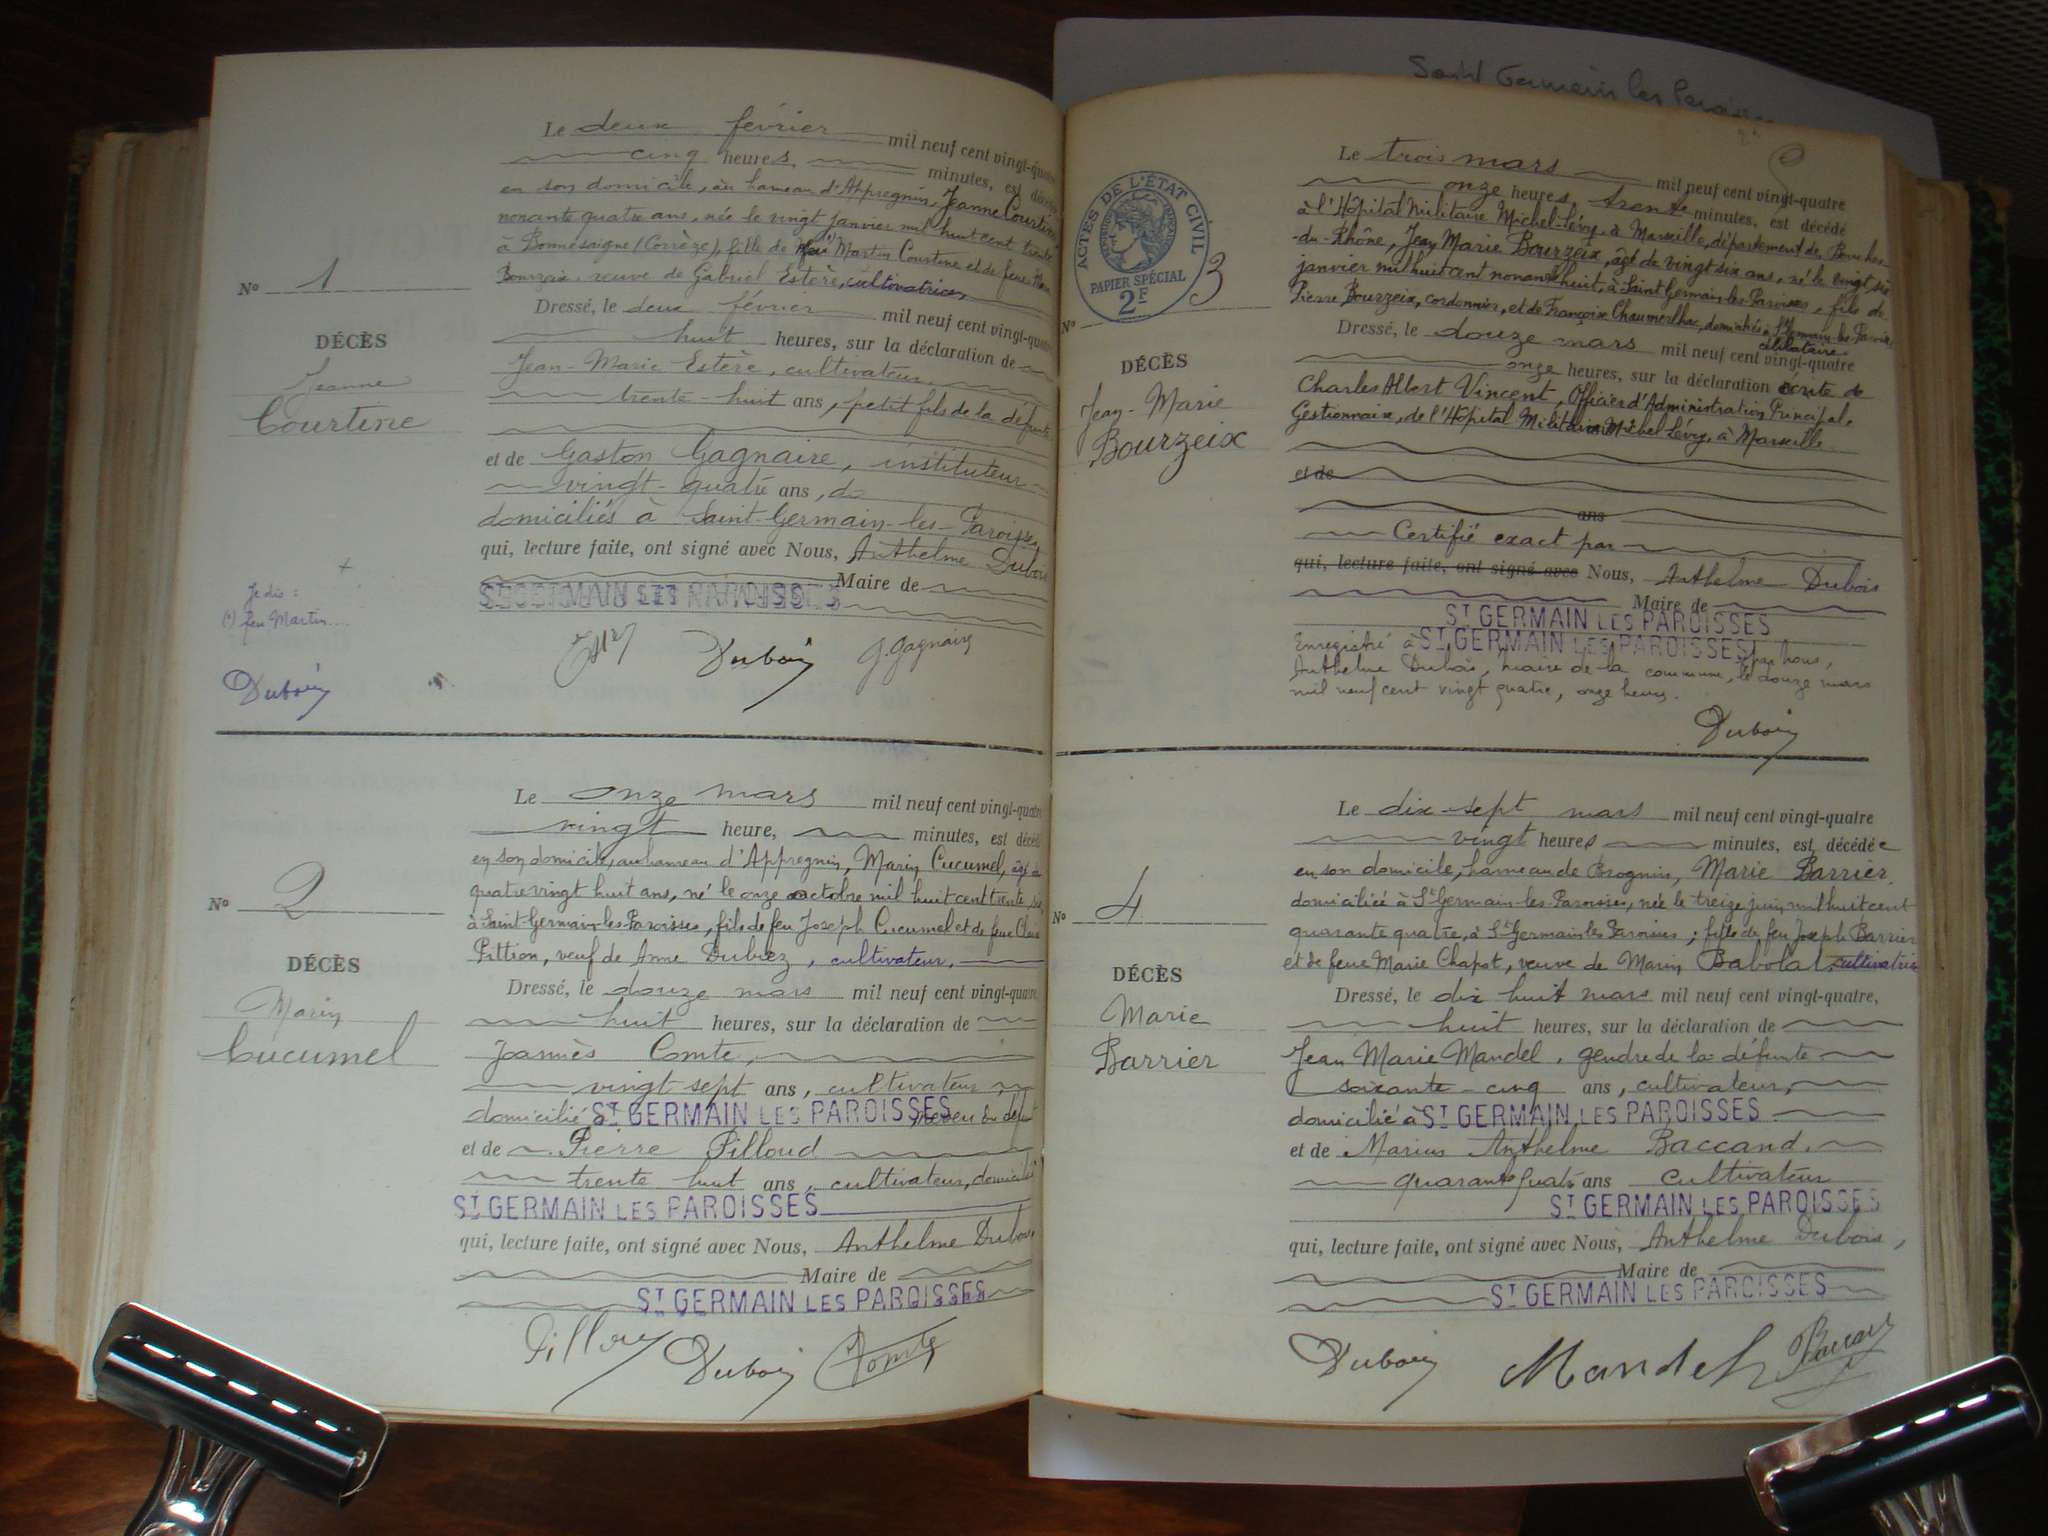 Saint Germain les Paroisses
Le deux février mil neuf cent vingt-quatre
cinq heures, minutes, est décédée
en son domicile, au hameau d'Appregnin, Jeanne Courtine
nonante quatre ans, née le vingt janvier mil huit cent trente
à Bonnesaigne (Corrèze), fille de Martin Courtine et de feue
Bourzeix, veuve de Gabriel Estère, cultivatrice,
No 1
DÉCÈS
Jeanne
Courtine
Dressé, le deux février mil neuf cent vingt-quatre
huit heures, sur la déclaration de
Jean-Marie Estère, cultivateur,
trente-huit ans, petit fils de la défunte
et de Gaston Gagnaire, instituteur
vingt-quatre ans, d
domiciliés à Saint-Germain-les-Paroisses,
qui, lecture faite, ont signé avec Nous, Anthelme Dubois
Maire de
ST GERMAIN LES PAROISSES
+
Je dis :
(1) feu Martin....
Dubois
Dubois G. Gagnaire
Le onze mars mil neuf cent vingt-quatre
vingt heure, minutes, est décédé
en son domicile, au hameau d'Appregnin, Marin Cucumel, âgé de
quatre vingt huit ans, né le onze octobre mil huit cent trente six,
à Saint-Germain-les-Paroisses, fils de feu Joseph Cucumel et de feue
Pittion, veuf de Anne Dubiez, cultivateur,
No 2
DÉCÈS
Marin
Cucumel
Dressé, le douze mars mil neuf cent vingt-quatre,
huit heures, sur la déclaration de
Joannès Comte,
vingt sept ans, cultivateur,
domicilié ST GERMAIN LES PAROISSES, neveu du défunt
et de Pierre Pilloud
trente huit ans, cultivateur, domicilié
ST GERMAIN LES PAROISSES
qui, lecture faite, ont signé avec Nous, Anthelme Dubois,
Maire de
ST GERMAIN LES PAROISSES
Pilloud Dubois Comte
Le trois mars mil neuf cent vingt-quatre
onze heures trente minutes, est décédé
à l'Hôpital Militaire Michel-Lévy, à Marseille, département des Bouches-
-du-Rhône, Jean Marie Bourzeix, âgé de vingt six ans, né le vingt six
janvier mil huit cent nonante huit, à Saint Germain-les-Paroisses, fils de
Pierre Bourzeix, cordonnier, et de Françoise Chaumerlhac, domiciliés à St Germain-les-Paroisses
célibataire
ACTES DE L'ÉTAT CIVIL
PAPIER SPÉCIAL
2F
No 3
DÉCÈS
Jean-Marie
Bourzeix
Dressé, le douze mars mil neuf cent vingt-quatre
onze heures, sur la déclaration écrite de
Charles Albert Vincent, Officier d'Administration Principal,
Gestionnaire, de l'Hôpital Militaire Michel Lévy, à Marseille
et de
ans
Certifié exact par
qui, lecture faite, ont signé avec Nous, Anthelme Dubois
Maire de
ST GERMAIN LES PAROISSES
Enregistré à ST GERMAIN LES PAROISSES, par Nous,
Anthelme Dubois, maire de la commune, le douze mars
mil neuf cent vingt quatre, onze heures.
Dubois
Le dix-sept mars mil neuf cent vingt-quatre
vingt heures minutes, est décédée
en son domicile, hameau de Brognin, Marie Barrier,
domiciliée à St Germain-les-Paroisses, née le treize juin mil huit cent
quarante quatre, à St Germain les Paroisses ; fille de feu Joseph Barrier
et de feue Marie Chapot, veuve de Marin Babolat, cultivatrice
No 4
DÉCÈS
Marie
Barrier
Dressé, le dix huit mars mil neuf cent vingt-quatre,
huit heures, sur la déclaration de
Jean Marie Mandel, gendre de la défunte
soixante-cinq ans, cultivateur,
domicilié à ST GERMAIN LES PAROISSES
et de Marius Anthelme Baccand,
quarante quatre ans cultivateur
ST GERMAIN LES PAROISSES
qui, lecture faite, ont signé avec Nous, Anthelme Dubois,
Maire de
ST GERMAIN LES PAROISSES
Dubois Mandel Baccand